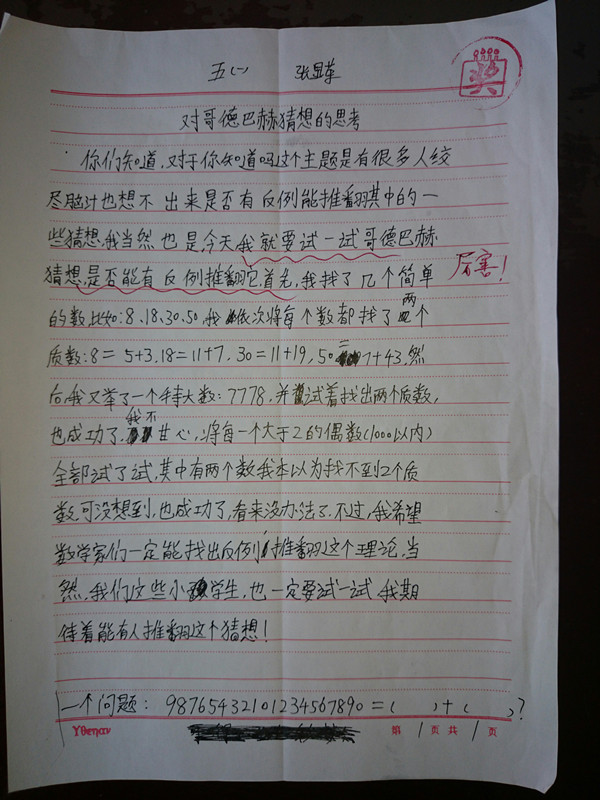 五(一) 张显革
奖
对哥德巴赫猜想的思考
你们知道,对于你知道吗这个主题是有很多人绞
尽脑汁也想不出来是否有反例能推翻其中的一
些猜想.我当然也是,今天我就要试一试哥德巴赫
猜想,是否能有反例推翻它.首先,我找了几个简单
厉害!
的数,比如:8、18、30、50,我依次将每个数都找了两个
质数:8=5+3,18=11+7,30=11+19,50=7+43.然
后,我又举了一个特大数:7778,并试着找出两个质数,
也成功了.我不甘心,将每一个大于2的偶数(1000以内)
全部试了试,其中有两个数我本以为找不到2个质
数,可没想到,也成功了,看来没办法了.不过,我希望
数学家们一定能找出反例推翻这个理论,当
然,我们这些小学生,也一定要试一试.我期
待着能有人推翻这个猜想!
一个问题:98765432101234567890=( )+( )?
Ythenan 第1页共1页